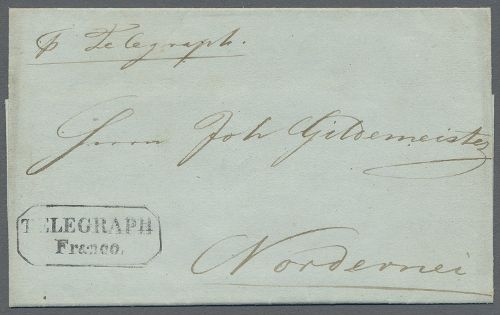 p Telegraph.
Herrn Joh Gildemeister
TELEGRAPH
Franco.
Nordernei